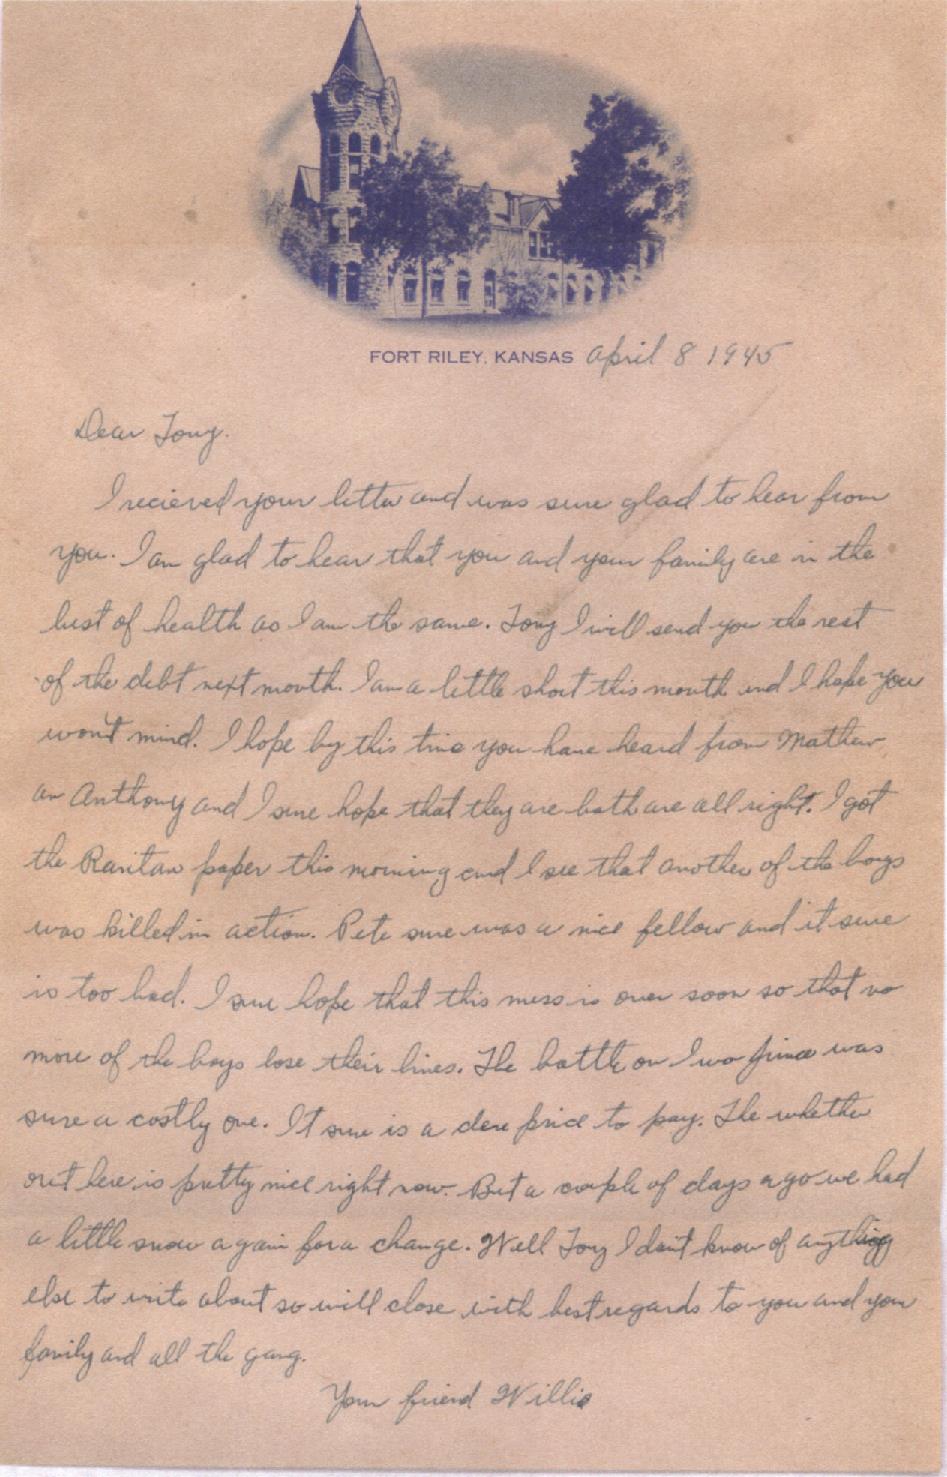 FORT RILEY, KANSAS April 8 1945
Dear Tony.
I recieved your letter and was sure glad to hear from
you. I am glad to hear that you and your family are in the
best of health as I am the same. Tony I will send you the rest
of the debt next month. I am a little short this month and I hope you
won't mind. I hope by this time you have heard from Mathew
an Anthony and I sure hope that they are both are all right. I got
the Raritan paper this morning and I see that another of the boys
was killed in action. Pete sure was a nice fellow and it sure
is too bad. I sure hope that this mess is over soon so that no
more of the boys lose their lives. The battle on Iwo Jima was
sure a costly one. It sure is a dere price to pay. The whether
out here is pretty nice right now. But a couple of days ago we had
a little snow again for a change. Well Tony I don't know of anything
else to write about so will close with best regards to you and your
family and all the gang.
Your friend Willie